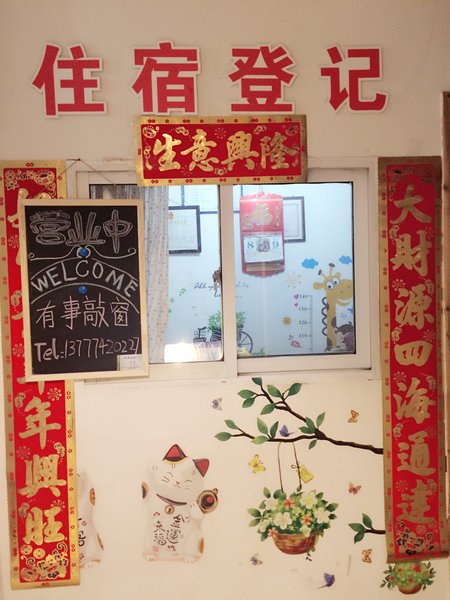 住宿登记
生意興隆
大財源四海通達
年興旺
营业中
WELCOME
有事敲窗
Tel:13777420227
8 9
140